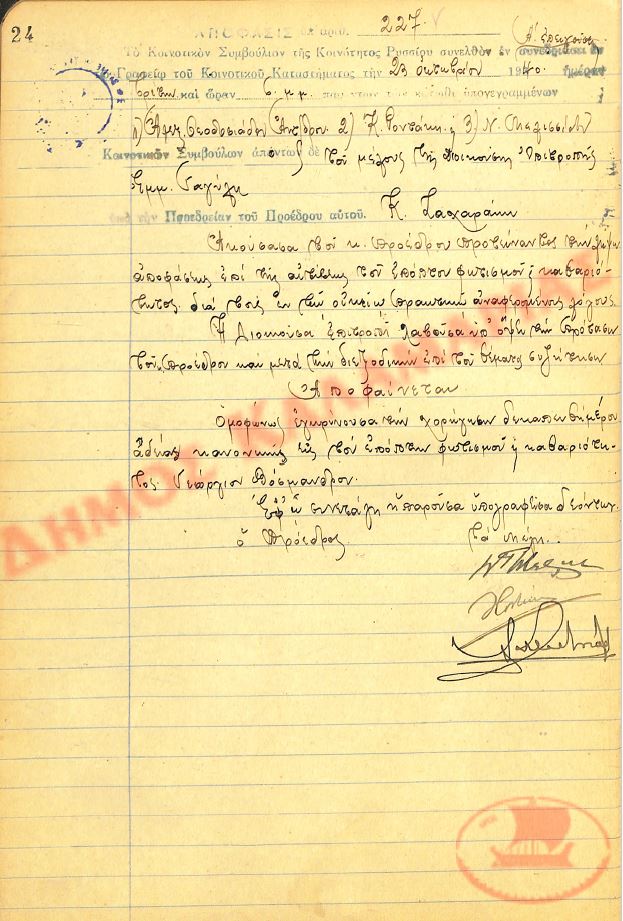 24
ΑΠΟΦΑΣΙΣ ὑπ' ἀριθ. 227.
Τὸ Κοινοτικὸν Συμβούλιον τῆς Κοινότητος Ρυσσίου συνελθὸν ἐν συνεδριάσει ἐν
τῷ Γραφείῳ τοῦ Κοινοτικοῦ Καταστήματος τὴν 23 ὀκτωβρίου 1940. ἡμέραν
Τρίτην καὶ ὥραν 6 μ.μ. ὑπογεγραμμένων
1) Ἀλεξ. Θεοδοσιάδη 2) Κ. 3) Ν. Μελισσίδη
Κοινοτικῶν Συμβούλων ἀπόντων δὲ τοῦ μέλους τῆς Διοικούσης ἐπιτροπῆς
Ἐμμ.
ὑπὸ τὴν Προεδρείαν τοῦ Προέδρου αὐτοῦ. Κ. Σαχαράκη
Ἀκούσασα τὸν κ. Πρόεδρον προτείναντος τὴν λῆψιν
ἀποφάσεως ἐπὶ τῆς αἰτήσεως τοῦ ἐπόπτου φωτισμοῦ ἢ καθαριό-
τητος διὰ τοὺς ἐν τῷ οἰκείῳ πρακτικῷ ἀναφερομένους λόγους.
Ἡ Διοικοῦσα ἐπιτροπὴ λαβοῦσα ὑπ' ὄψη τὴν πρότασιν
τοῦ Προέδρου καὶ μετὰ τὴν διεξοδικὴν ἐπὶ τοῦ θέματος συζήτησιν
Ἀποφαίνεται
Ὁμοφώνως ἐγκρίνουσα τὴν χορήγησιν δεκαπενθημέρου
ἀδείας κανονικῆς εἰς τὸν ἐπόπτην φωτισμοῦ ἢ καθαριότη-
τος Γεώργιον Πόσμανδρον.
Ἐφ' ᾧ συνετάγη ἡ παροῦσα ὑπογραφεῖσα δεόντως.
ὁ Πρόεδρος τὰ μέλη.
ΔΗΜΟΣ ΚΑΛΑΜΑΡΙΑΣ